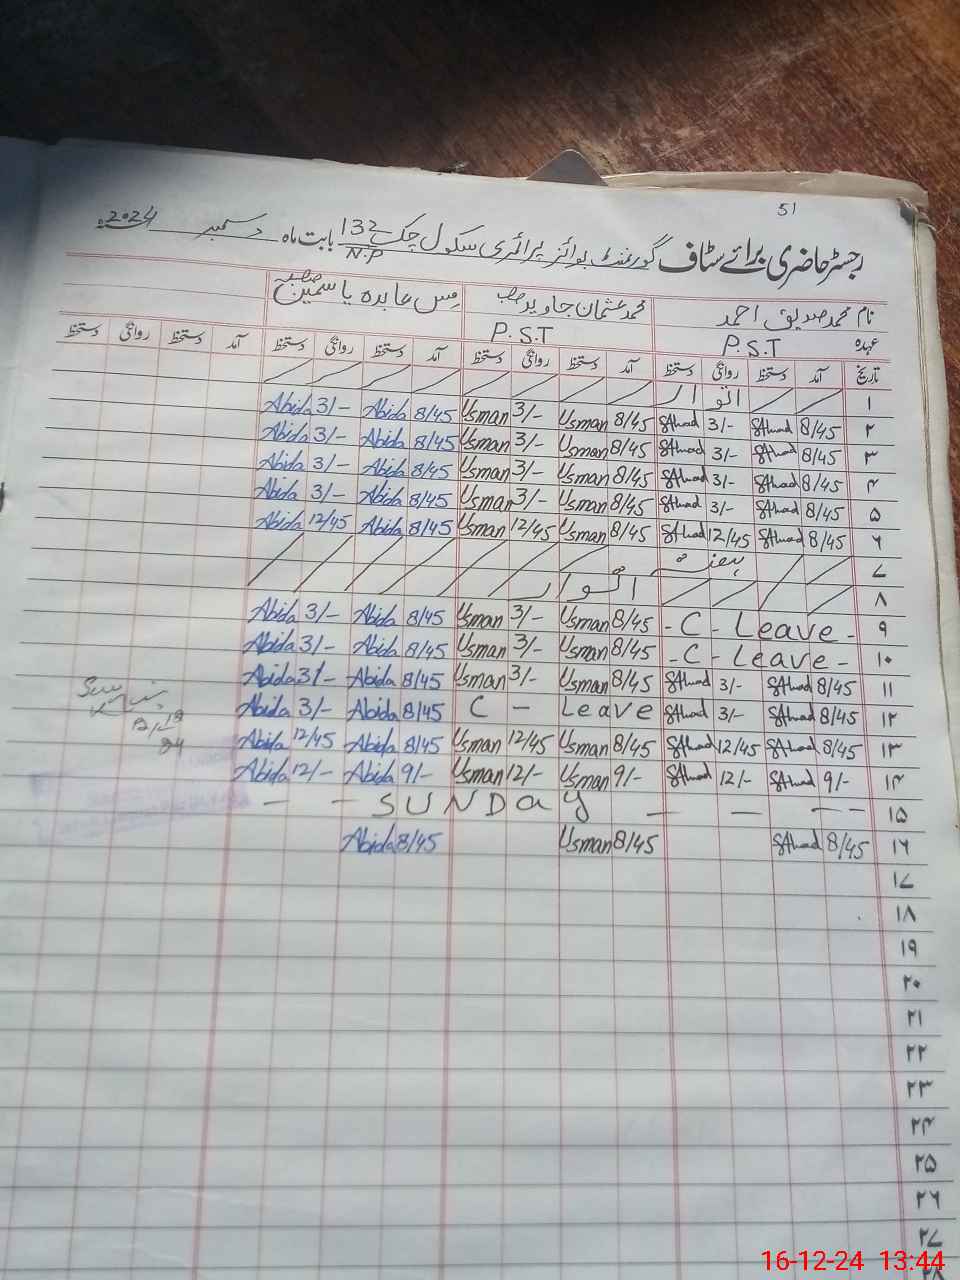 51
رجسٹر حاضری برائے سٹاف گورنمنٹ بوائز پرائمری سکول چک 132 N.P بابت ماہ دسمبر 2024
نام محمد صدیق احمد محمد عثمان جاوید صاحب مس عابدہ یاسمین صاحبہ
عہدہ P.S.T P.S.T
تاریخ آمد دستخط روانگی دستخط آمد دستخط روانگی دستخط آمد دستخط روانگی دستخط آمد دستخط روانگی دستخط
۱ اتوار
۲ 8/45 SAhmad 3/- SAhmad 8/45 Usman 3/- Usman 8/45 Abida 3/- Abida
۳ 8/45 SAhmad 3/- SAhmad 8/45 Usman 3/- Usman 8/45 Abida 3/- Abida
۴ 8/45 SAhmad 3/- SAhmad 8/45 Usman 3/- Usman 8/45 Abida 3/- Abida
۵ 8/45 SAhmad 3/- SAhmad 8/45 Usman 3/- Usman 8/45 Abida 3/- Abida
۶ 8/45 SAhmad 12/45 SAhmad 8/45 Usman 12/45 Usman 8/45 Abida 12/45 Abida
۷ ہفتہ
۸ اتوار
۹ - C - Leave - 8/45 Usman 3/- Usman 8/45 Abida 3/- Abida
۱۰ - C - Leave - 8/45 Usman 3/- Usman 8/45 Abida 3/- Abida
۱۱ 8/45 SAhmad 3/- SAhmad 8/45 Usman 3/- Usman 8/45 Abida 3/- Abida
۱۲ 8/45 SAhmad 3/- SAhmad C - Leave 8/45 Abida 3/- Abida
۱۳ 8/45 SAhmad 12/45 SAhmad 8/45 Usman 12/45 Usman 8/45 Abida 12/45 Abida
۱۴ 9/- SAhmad 12/- SAhmad 9/- Usman 12/- Usman 9/- Abida 12/- Abida
۱۵ - - SUNDaY - - - -
۱۶ 8/45 SAhmad 8/45 Usman 8/45 Abida
۱۷
۱۸
۱۹
۲۰
۲۱
۲۲
۲۳
۲۴
۲۵
۲۶
۲۷
۲۸
16-12-24 13:44